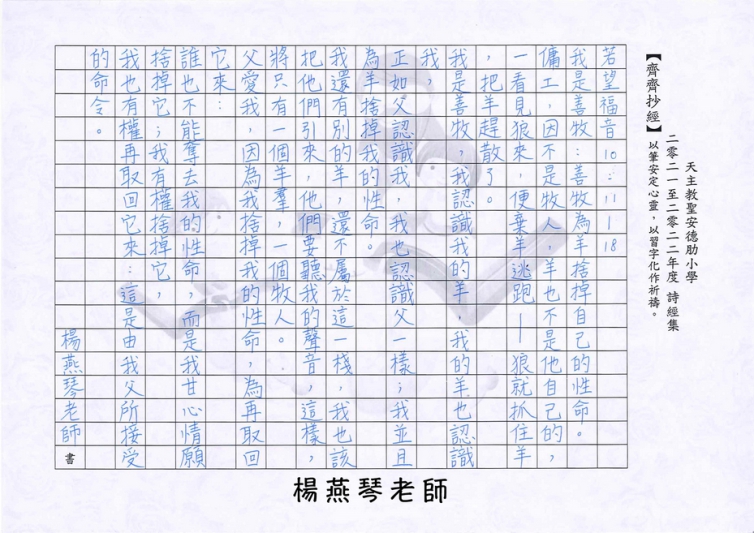 天主教聖安德肋小學
二零二一至二零二二年度 詩經集
【齊齊抄經】以筆安定心靈，以習字化作祈禱。
若望福音10：11－18
我是善牧：善牧為羊捨掉自己的性命。
傭工，因不是牧人，羊也不是他自己的，
一看見狼來，便棄羊逃跑—狼就抓住羊
，把羊趕散了。
我是善牧，我認識我的羊，我的羊也認識
我，
正如父認識我，我也認識父一樣；我並且
為羊捨掉我的性命。
我還有別的羊，還不屬於這一棧，我也該
把他們引來，他們要聽我的聲音，這樣，
將只有一個羊羣，一個牧人。
父愛我，因為我捨掉我的性命，為再取回
它來：
誰也不能奪去我的性命，而是我甘心情願
捨掉它；我有權捨掉它，
我也有權再取回它來：這是由我父所接受
的命令。
楊燕琴老師 書
楊燕琴老師